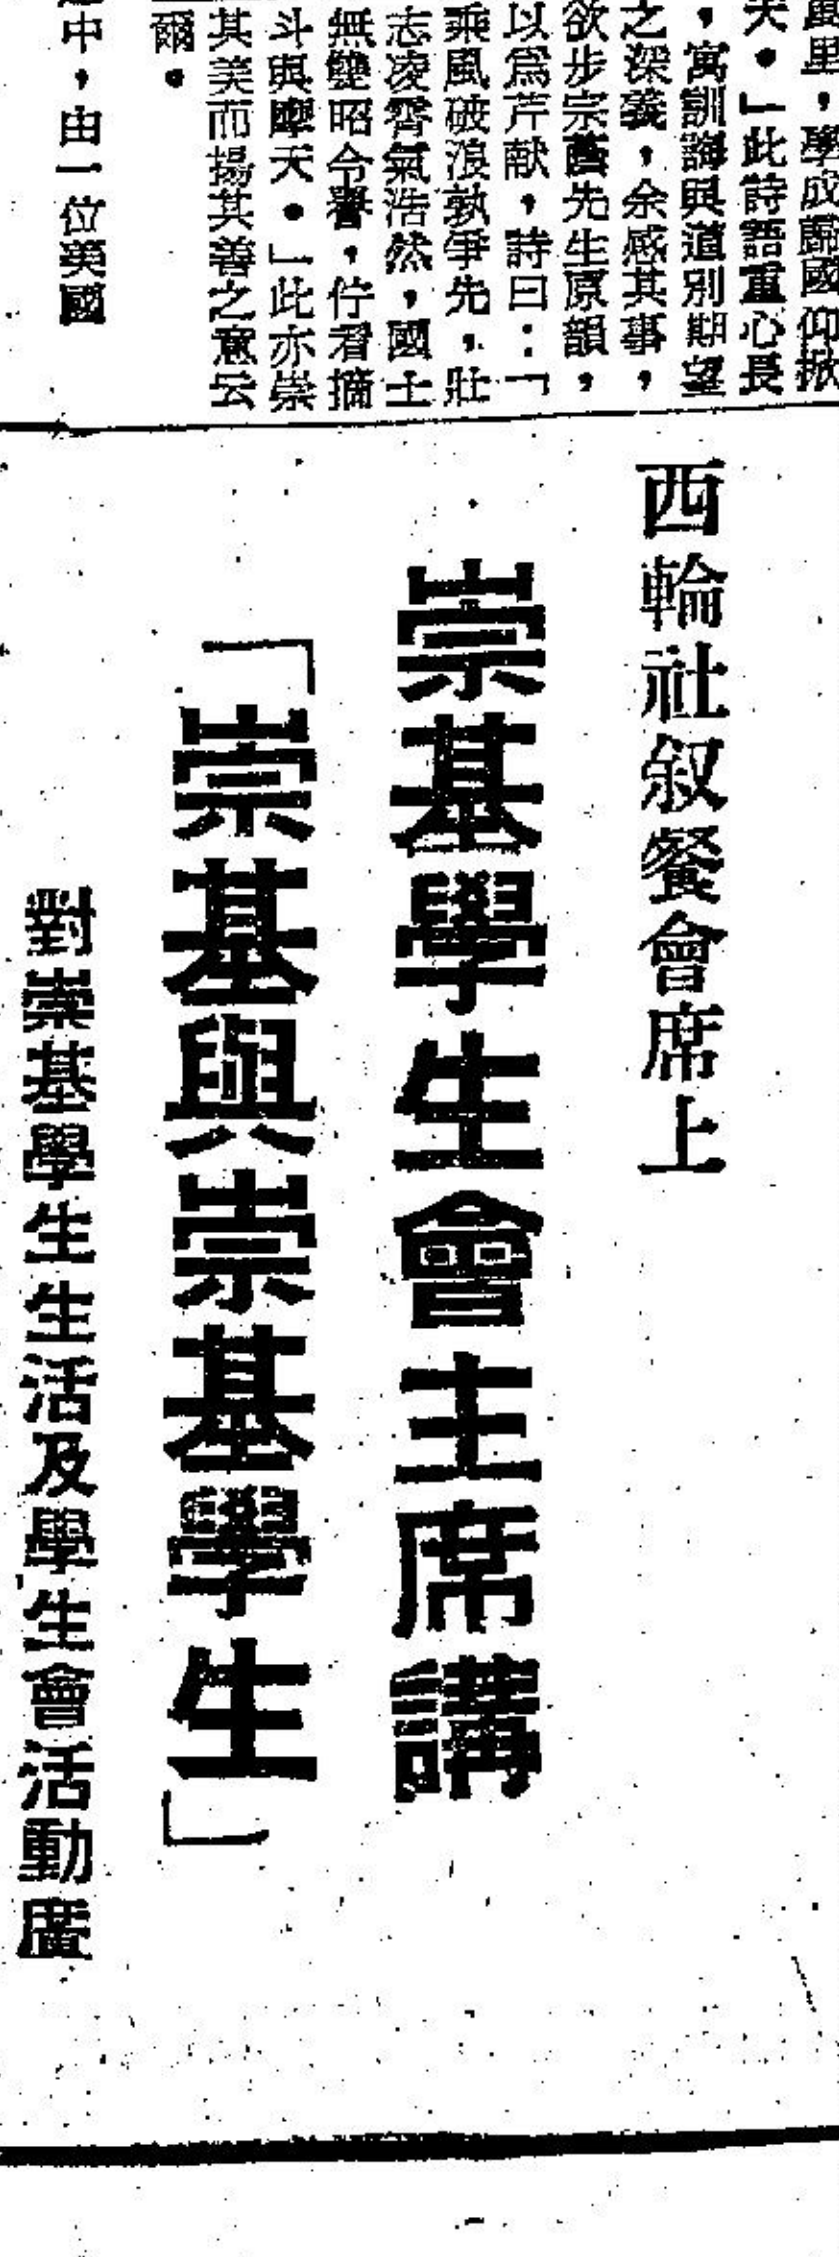 萬里，學成歸國仰掀
天。」此詩語重心長
，寓訓誨與道別期望
之深義，余感其事，
欲步宗舊先生原韻，
以爲芹献，詩曰：「
乘風破浪孰爭先，壯
志凌霄氣浩然，國士
無雙昭令譽，佇看摘
斗與摩天。」此亦崇
其美而揚其善之意云
爾。
中，由一位英國
西輪社叙餐會席上
崇基學生會主席講
「崇基與崇基學生」
對崇基學生生活及學生會活動廣